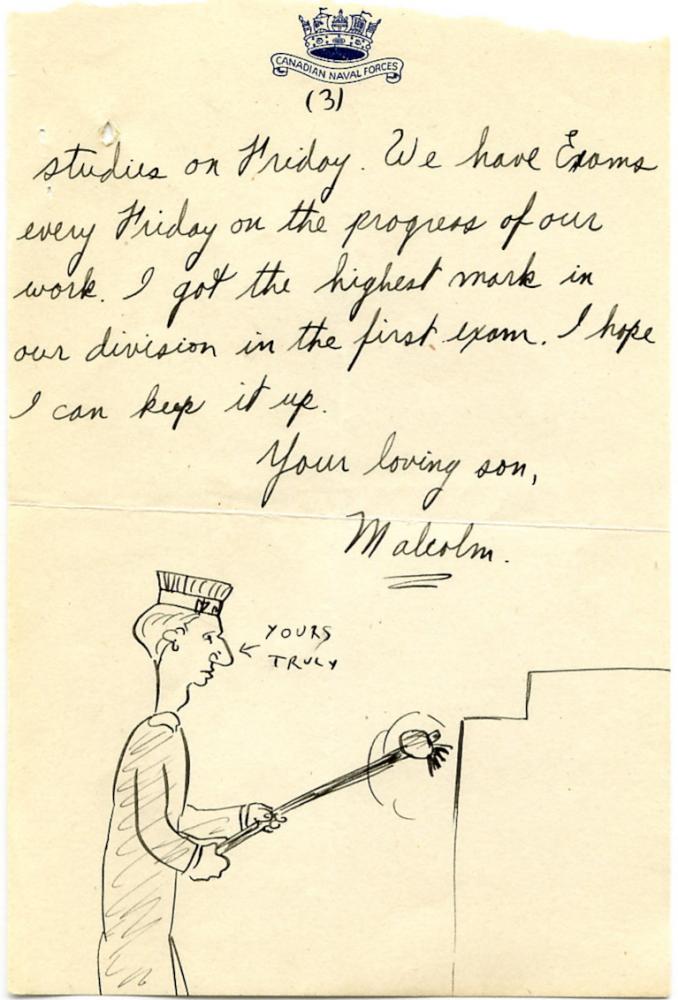 CANADIAN NAVAL FORCES
(3)
studies on Friday. We have Exams
every Friday on the progress of our
work. I got the highest mark in
our division in the first exam. I hope
I can keep it up.
Your loving son,
Malcolm.
YOURS
TRULY